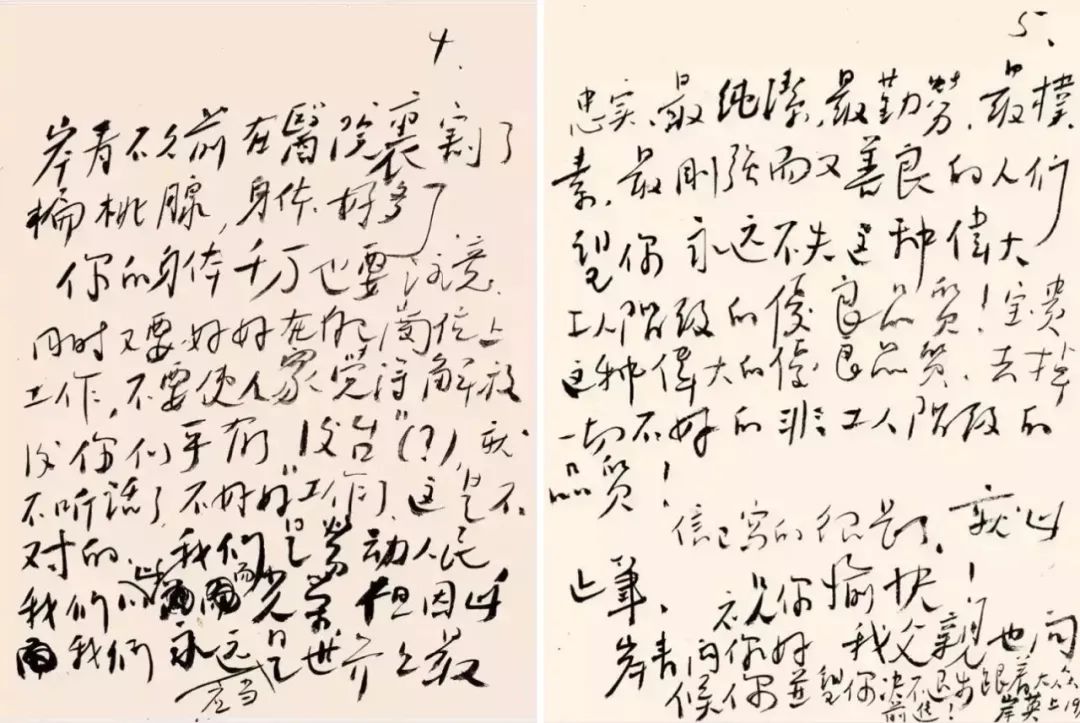 4.
岸青不久前在醫院裏割了
扁桃腺,身体好多了
你的身体千万也要注意.
同时又要好好在自己崗位上
工作,不要使人家觉得解放
後你们手有"後台"(?),就
不听話了,不好好"工作了,这是不
对的.我们是勞动人民
我们以此而光荣但因此
而我们永远是世界上最
应当
5.
忠实、最纯潔,最勤勞,最樸
素,最刚强而又善良的人们
望你永远不失这种偉大
工人階級的優良品質!宝贵
这种偉大的優良品質,去掉
一切不好的非工人階級的
品質!
信已写的很長了,就此
止筆,
祝你愉快!
岸青问你好 我父親也问
候你並望你决不退步跟着大众
前進!
岸英上 19